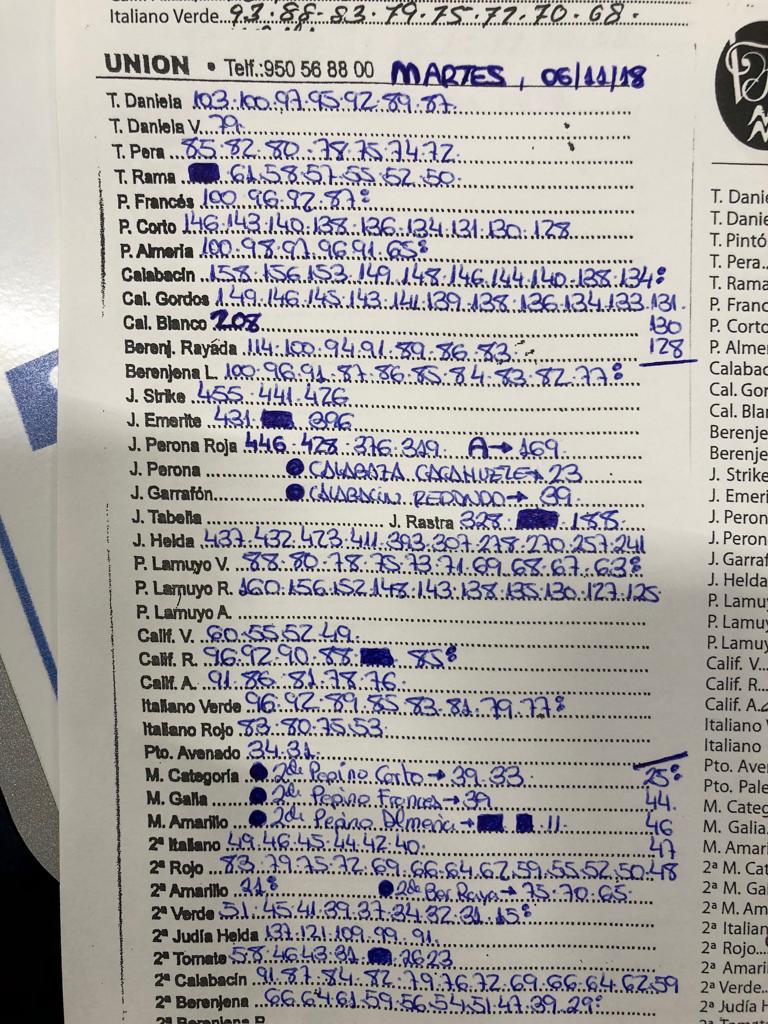 Italiano Verde..93.88.83.79.75.72.70.68.
UNION • Telf.:950 56 88 00 MARTES, 06/11/18
T. Daniela 103.100.97.95.92.89.87.
T. Daniela V...79.
T. Pera ...85.82.80.78.75.74.72.
T. Rama 61.58.57.55.52.50.
P. Francés 100.96.92.87:
P. Corto 146.143.140.138.136.134.131.130.128
P. Almeria 100.98.97.96.91.65:
Calabacín 158.156.153.149.148.146.144.140.138.134:
Cal. Gordos 149.146.145.143.141.139.138.136.134.133.131.
Cal. Blanco 208 130
Berenj. Rayada 114.100.94.91.89.86.83. 128
Berenjena L. 100.96.91.87.86.85.84.83.82.77:
J. Strike 455.441.426
J. Emerite 431 396
J. Perona Roja 446.428.376.319. A→169.
J. Perona ● CALABAZA CACAHUETE→23
J. Garrafón ● CALABACIN REDONDO→39.
J. Tabella J. Rastra 328. 188.
J. Helda 437.432.423.411.393.307.278.270.257.241
P. Lamuyo V. 88.80.78.75.73.71.69.68.67.63:
P. Lamuyo R. 160.156.152.148.143.138.135.130.127.125
P. Lamuyo A.
Calif. V. 60.55.52.49.
Calif. R. 96.92.90.88 85:
Calif. A. 91.86.81.78.76.
Italiano Verde 96.92.89.85.83.81.79.77:
Italiano Rojo 83.80.75.53.
Pto. Avenado 34.31.
M. Categoría ● 2de Pepino Corto→39.33. 25:
M. Galia ● 2de Pepino Frances→39. 44.
M. Amarillo ● 2de Pepino Almeria→ 11. 46
2ª Italiano 49.46.45.44.42.40. 47
2ª Rojo ...83.79.75.72.69.66.64.62.59.55.52.50.48
2ª Amarillo 21: ● 2de Ber Raya→75.70.65.
2ª Verde 51.45.41.39.37.34.32.31.15:
2ª Judía Helda 137.121.109.99.91.
2ª Tomate 58.46.43.31. 26.23
2ª Calabacín 91.87.84.82.79.76.72.69.66.64.62.59
2ª Berenjena 66.64.61.59.56.54.51.47.39.29:
2ª Berenjena R.
T. Pintó
T. Pera..
T. Rama
P. Franc
P. Corto
P. Almer
Calabac
Cal. Gor
Cal. Bla
Berenje
Berenje
J. Strike
J. Emeri
J. Peron
J. Peron
J. Garraf
J. Helda
P. Lamu
P. Lamuy
P. Lamuy
Calif. V...
Calif. R...
Calif. A.
Italiano
Italiano
Pto. Aven
Pto. Pale
M. Categ
M. Galia
M. Amari
2ª M. Cat
2ª M. Gal
2ª M. Am
2ª Italian
2ª Rojo...
2ª Amari
2ª Verde..
2ª Judía H